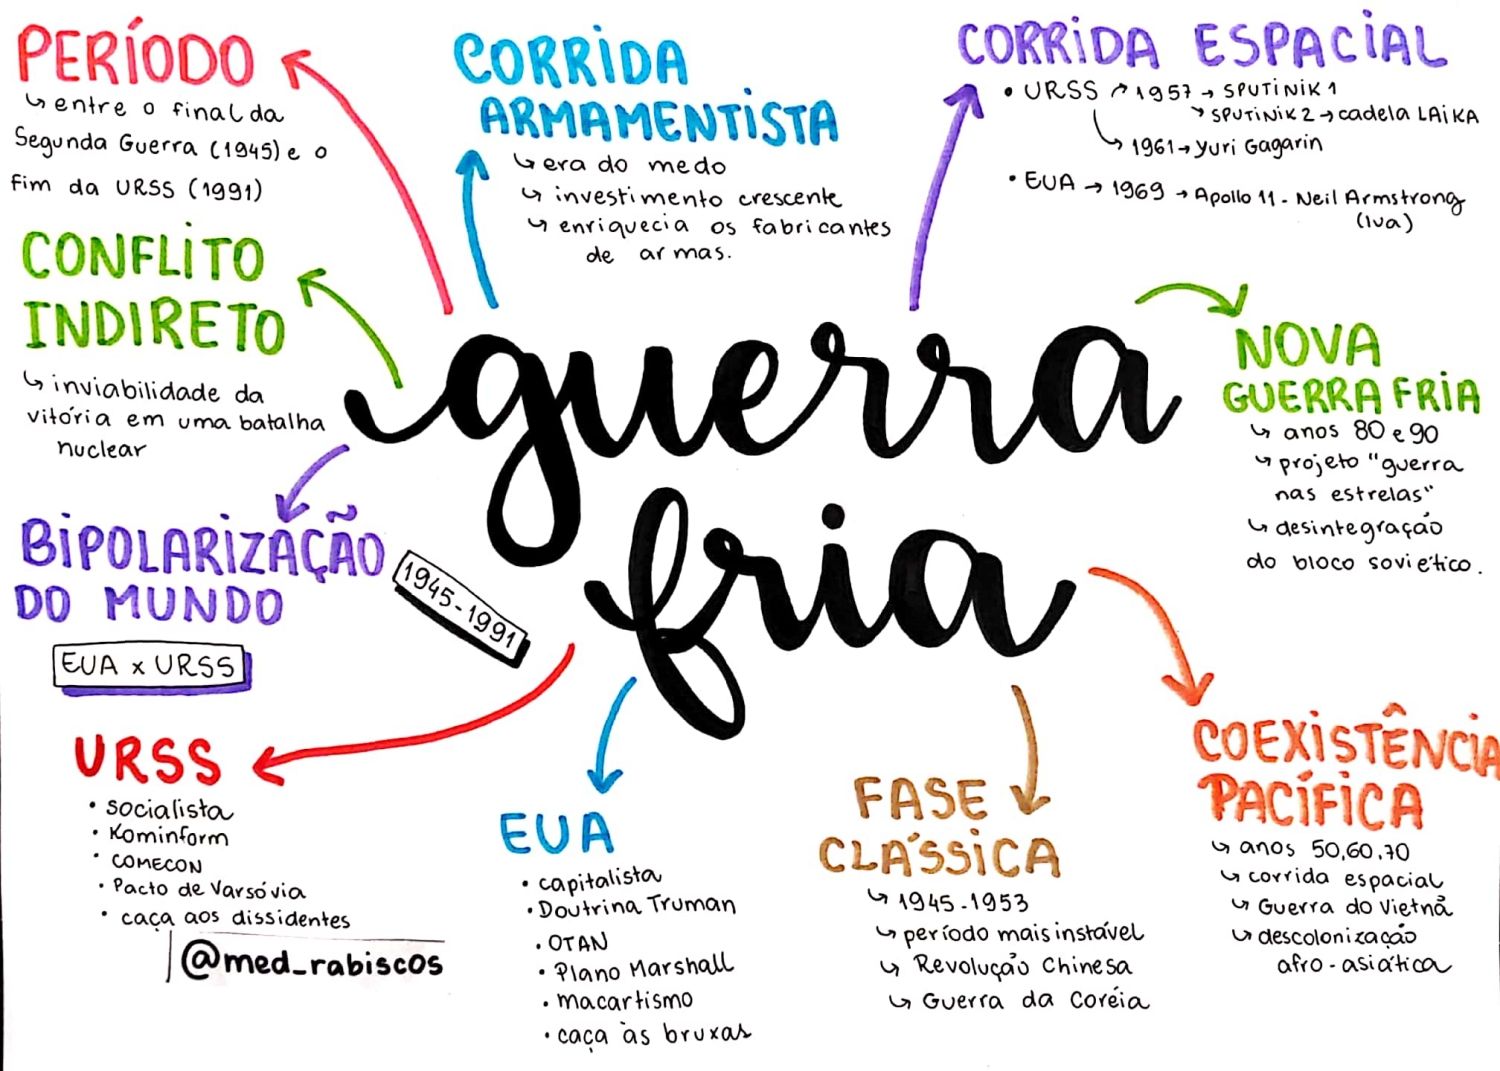 PERÍODO
↳ entre o final da
Segunda Guerra (1945) e o
fim da URSS (1991)
CORRIDA
ARMAMENTISTA
↳ era do medo
↳ investimento crescente
↳ enriquecia os fabricantes
de armas.
CORRIDA ESPACIAL
• URSS ↗ 1957 → SPUTINIK 1
↘ SPUTINIK 2 → cadela LAIKA
↳ 1961 → Yuri Gagarin
• EUA → 1969 → Apollo 11 - Neil Armstrong
(lua)
CONFLITO
INDIRETO
↳ inviabilidade da
vitória em uma batalha
nuclear
guerra
fria
1945-1991
NOVA
GUERRA FRIA
↳ anos 80 e 90
↳ projeto "guerra
nas estrelas"
↳ desintegração
do bloco soviético.
BIPOLARIZAÇÃO
DO MUNDO
EUA x URSS
URSS
• socialista
• Kominform
• COMECON
• Pacto de Varsóvia
• caça aos dissidentes
@med_rabiscos
EUA
• capitalista
• Doutrina Truman
• OTAN
• Plano Marshall
• macartismo
• caça às bruxas
FASE
CLÁSSICA
↳ 1945-1953
↳ período mais instável
↳ Revolução Chinesa
↳ Guerra da Coréia
COEXISTÊNCIA
PACÍFICA
↳ anos 50,60,70
↳ corrida espacial
↳ Guerra do Vietnã
↳ descolonização
afro-asiática